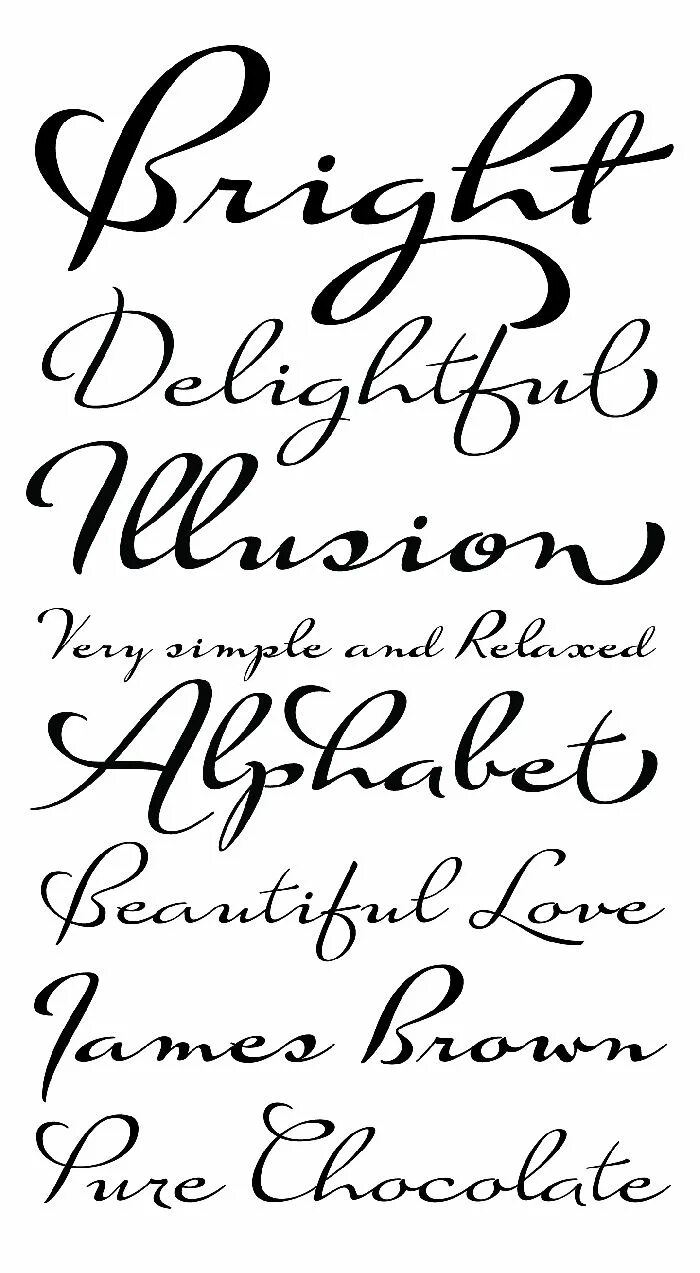 Bright
Delightful
Illusion
Very simple and Relaxed
Alphabet
Beautiful Love
James Brown
Pure Chocolate